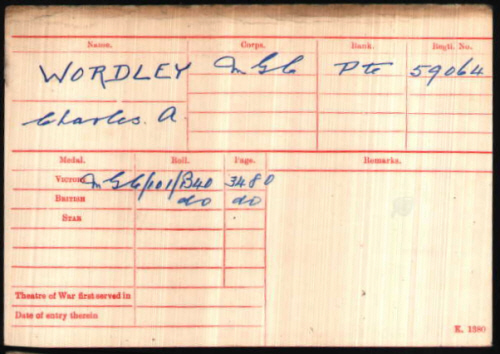 Name. Corps. Rank. Regtl. No.
WORDLEY M G C Pte 59064
Charles. A.
Medal. Roll. Page. Remarks.
Victory M G C/101/B40 3480
British do do
Star
Theatre of War first served in
Date of entry therein
K. 1380